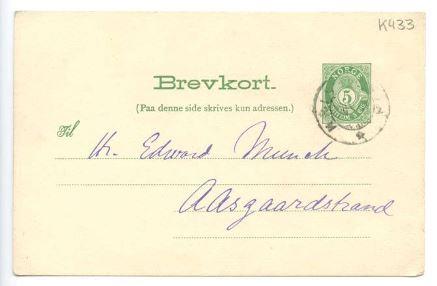 K433
Brevkort.
(Paa denne side skrives kun adressen.)
NORGE
5
Til
Hr. Edward Munch
Aasgaardstrand